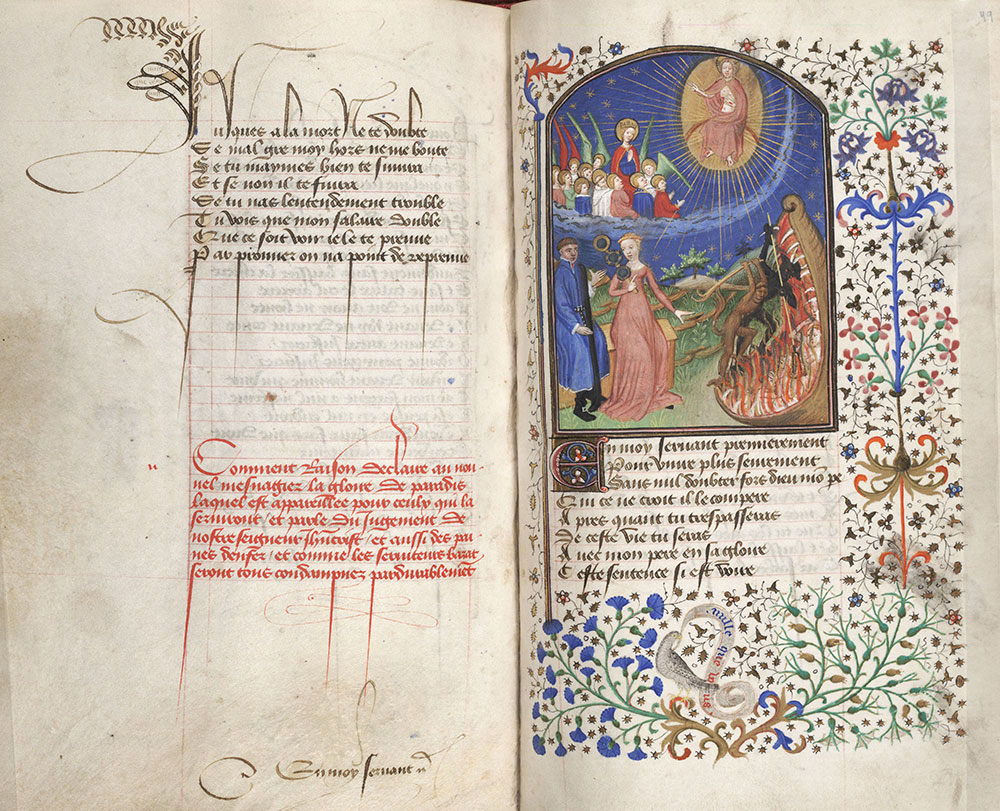 Jusques a la mort ne te doubte
Se mal gre moy hors ne me boute
Se tu maymes bien te suivra
Et se non il te fuira
Se tu nas lentendement trouble
Tu vois que mon salaire double
Que ce soit voir ie le te preuve
Par prouver on na point de repreuve
Comment Raison declaire au nou
vel mesnagier la gloire de paradis
laquel est appareillee pour ceulx qui la
serviront / et parle du Jugement de
nostre seigneur Jhucrist / et aussi des pai
nes denfer / et comme les serviteurs barat
seront tous condampnez pardurablement
En moy servant
49
En moy servant premierement
Pont vivre plus seurement
Sans nul doubter fors dieu mo pe
Qui ce ne croit il le compere
Apres quant tu trespasseras
De ceste vie tu seras
Avec mon pere en sa gloire
Ceste sentence si est voire
nulle que vous